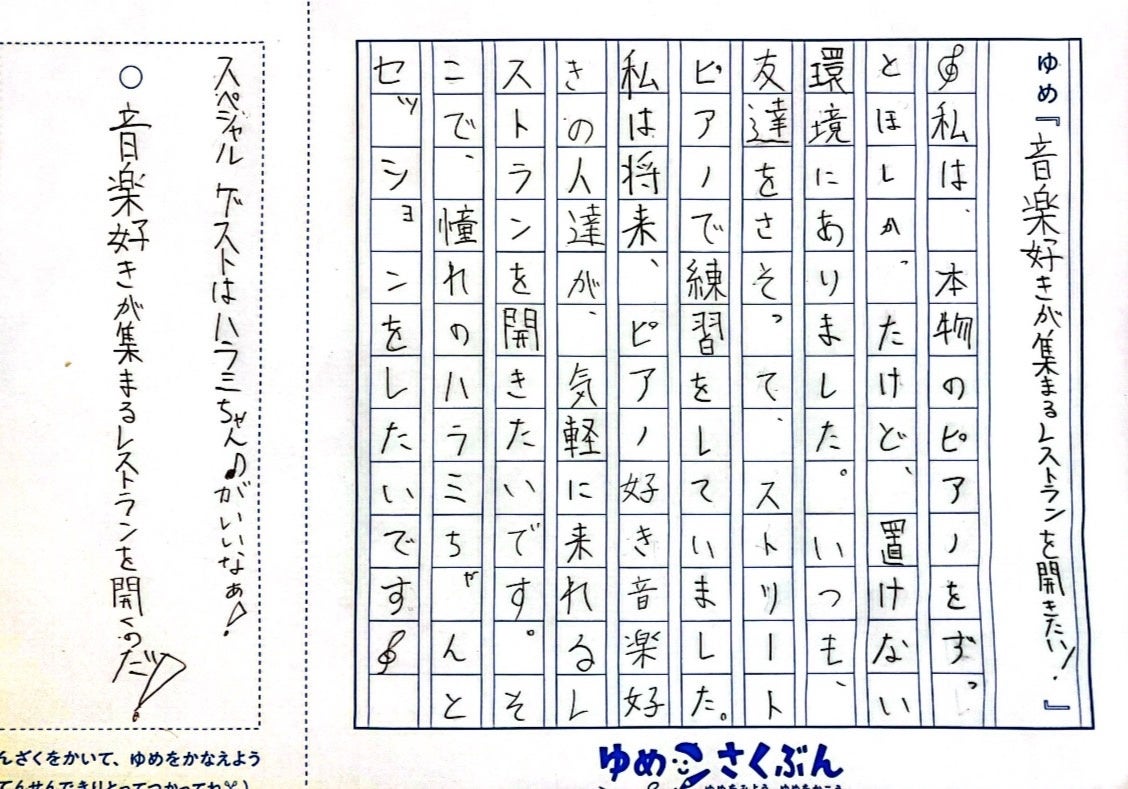 ゆめ『音楽好きが集まるレストランを開きたいッ!』
私は、本物のピアノをずっ
とほしかったけど、置けない
環境にありました。いつも、
友達をさそって、ストリート
ピアノで練習をしていました。
私は将来、ピアノ好き音楽好
きの人達が、気軽に来れるレ
ストランを開きたいです。そ
こで、憧れのハラミちゃんと
セッションをしたいです
スペシャルゲストはハラミちゃん♪がいいなぁ!
○ 音楽好きが集まるレストランを開くのだッ!
ゆめ さくぶん
んざくをかいて、ゆめをかなえよう